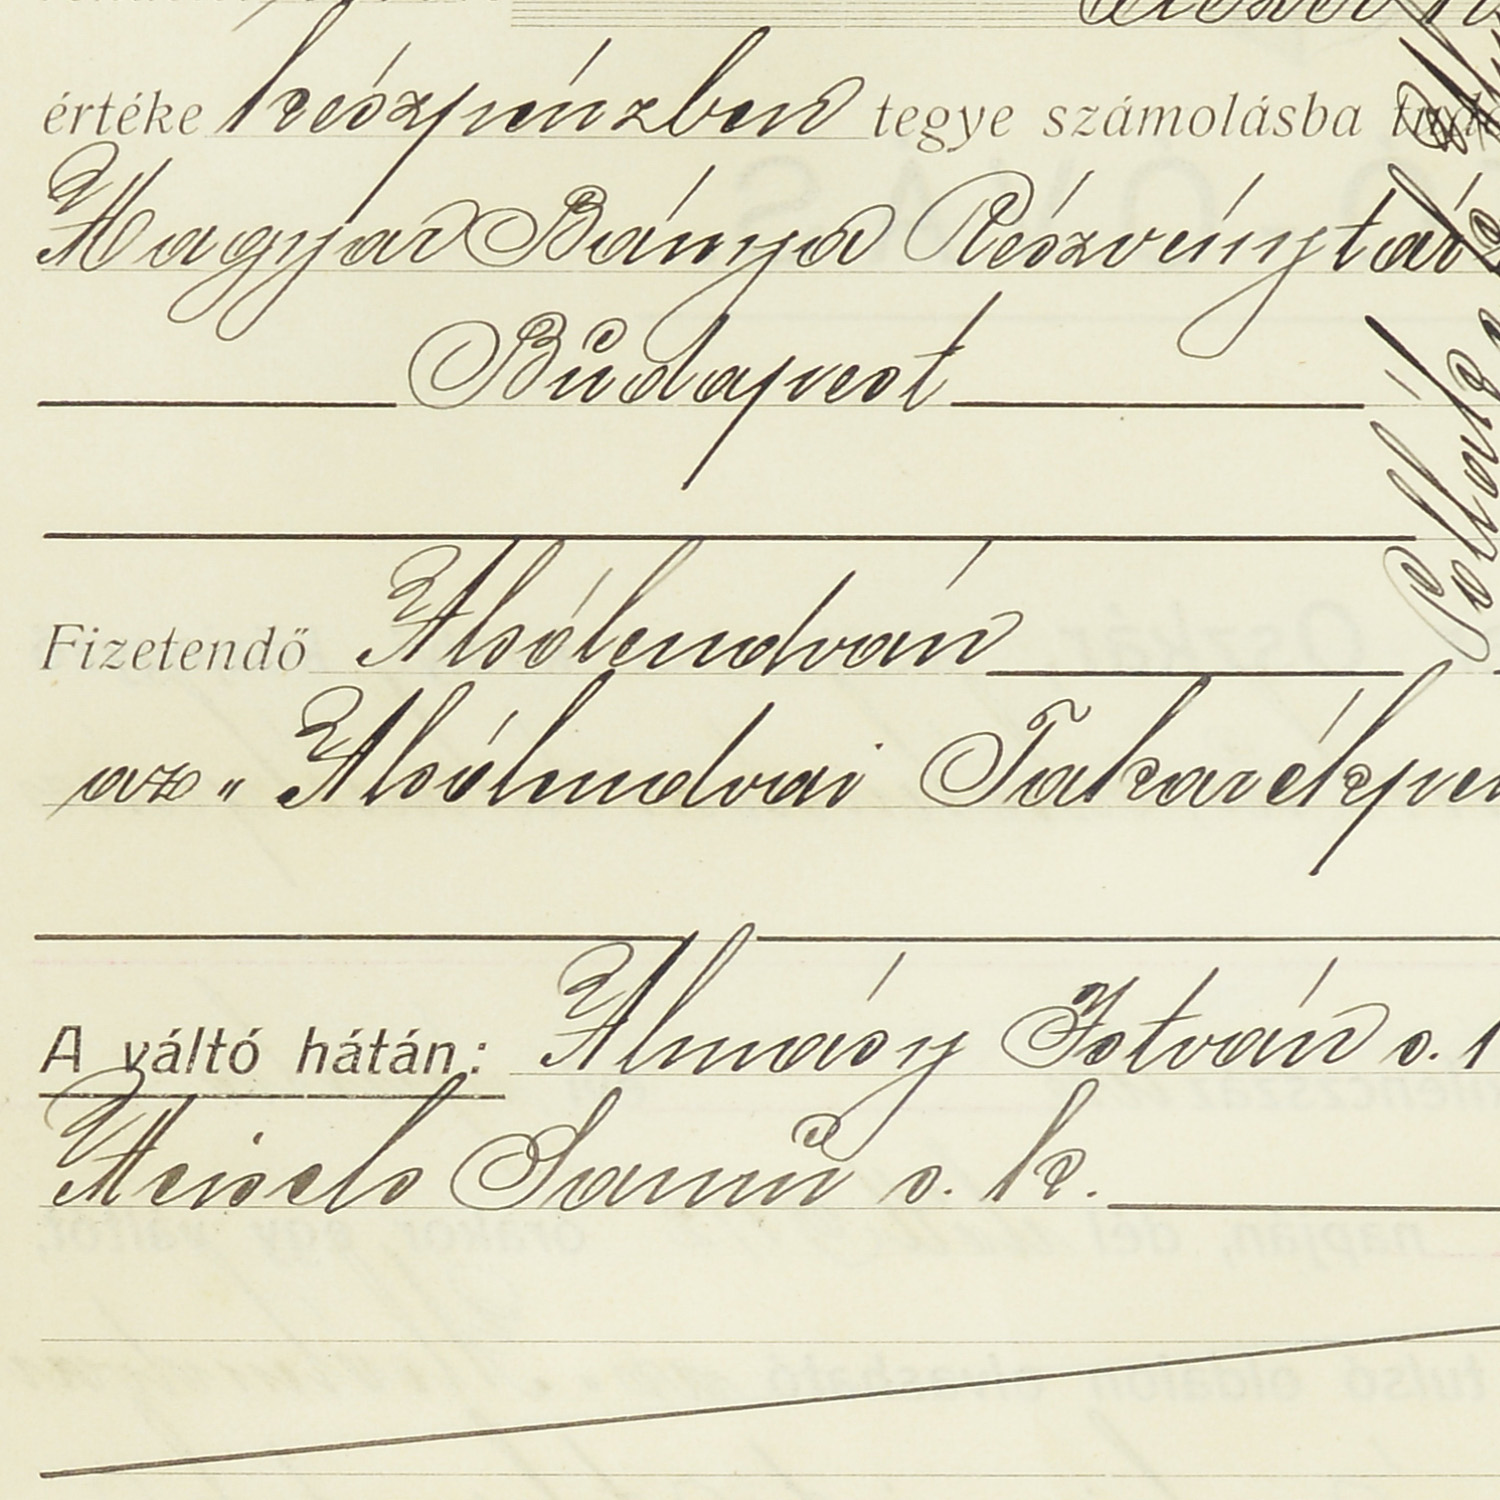 értéke készpénzben tegye számolásba
Magyar Bánya Részvénytár
Budapest
Fizetendő Alsólendván
az „Alsólendvai Takarékpén
A váltó hátán: Almásy István s.
Samu s. k.
Pollák